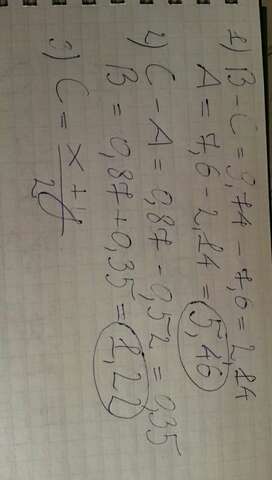 1) B - C = 9,74 - 7,6 = 2,14
A = 7,6 - 2,14 = 5,46
2) C - A = 0,87 - 0,52 = 0,35
B = 0,87 + 0,35 = 1,22
3) C = x +